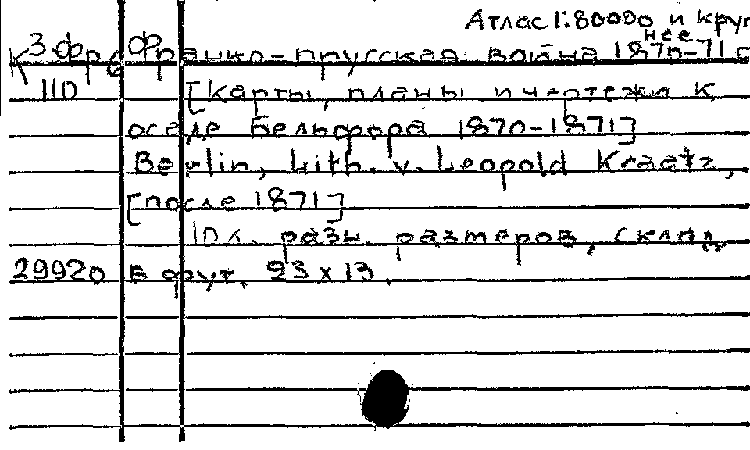 Атлас 1:80000 и круп
нее
К 3 фр6 Франко-прусская война 1870-71 г
110 [Карты, планы и чертежи к
осаде Бельфора 1870-1871]
Berlin, Lith. v. Leopold Kraatz,
[после 1871]
10 л. разн. размеров, склад.
29920 в фут. 23 х 13.